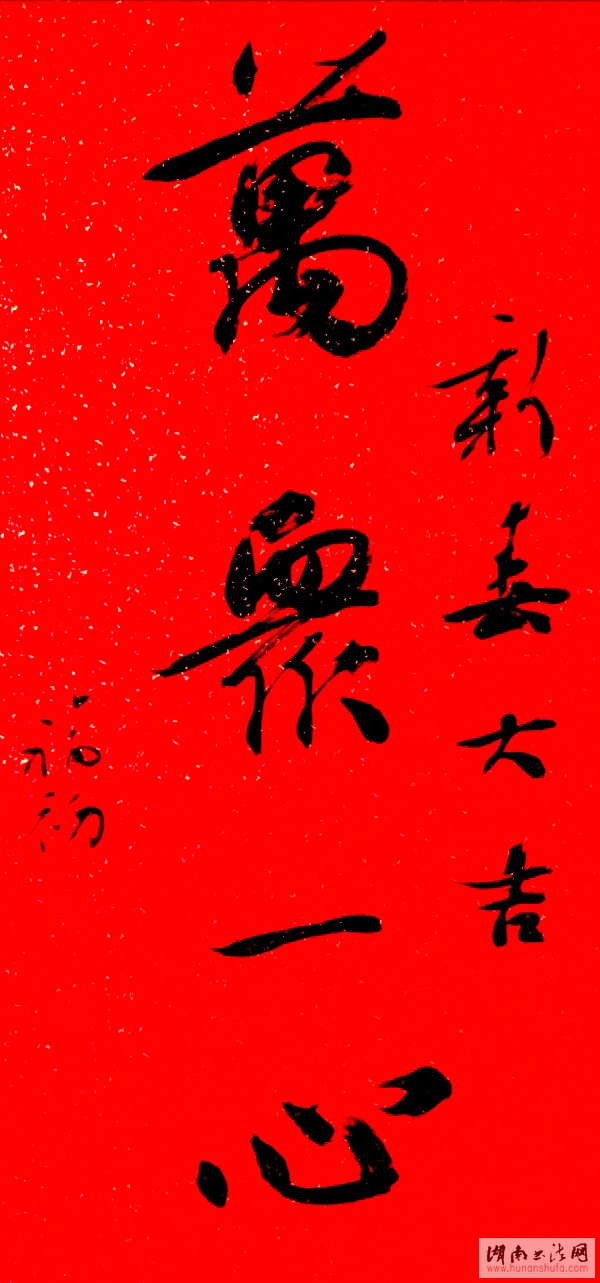 新春大吉
萬眾一心
福初
湖南书法网
www.hunanshufa.com